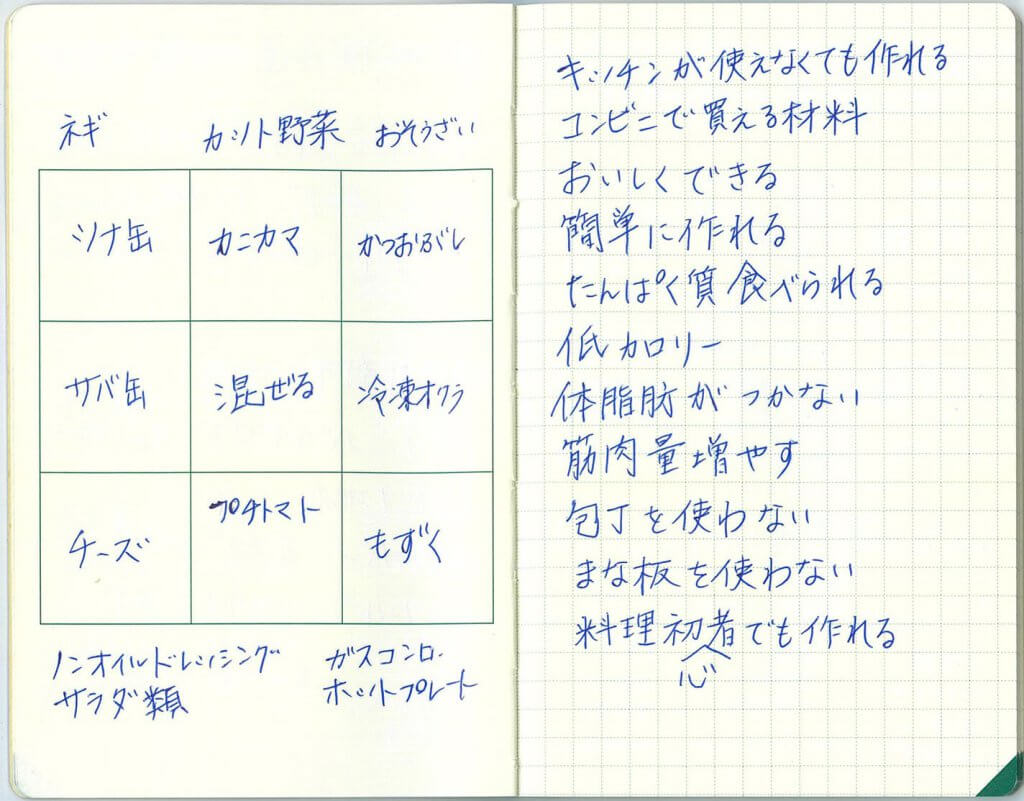 ネギ カット野菜 おそうざい
ツナ缶 カニカマ かつおぶし
サバ缶 混ぜる 冷凍オクラ
チーズ プチトマト もずく
ノンオイルドレッシング
サラダ類
ガスコンロ.
ホットプレート
キッチンが使えなくても作れる
コンビニで買える材料
おいしくできる
簡単に作れる
たんぱく質食べられる
低カロリー
体脂肪がつかない
筋肉量増やす
包丁を使わない
まな板を使わない
料理初心者でも作れる